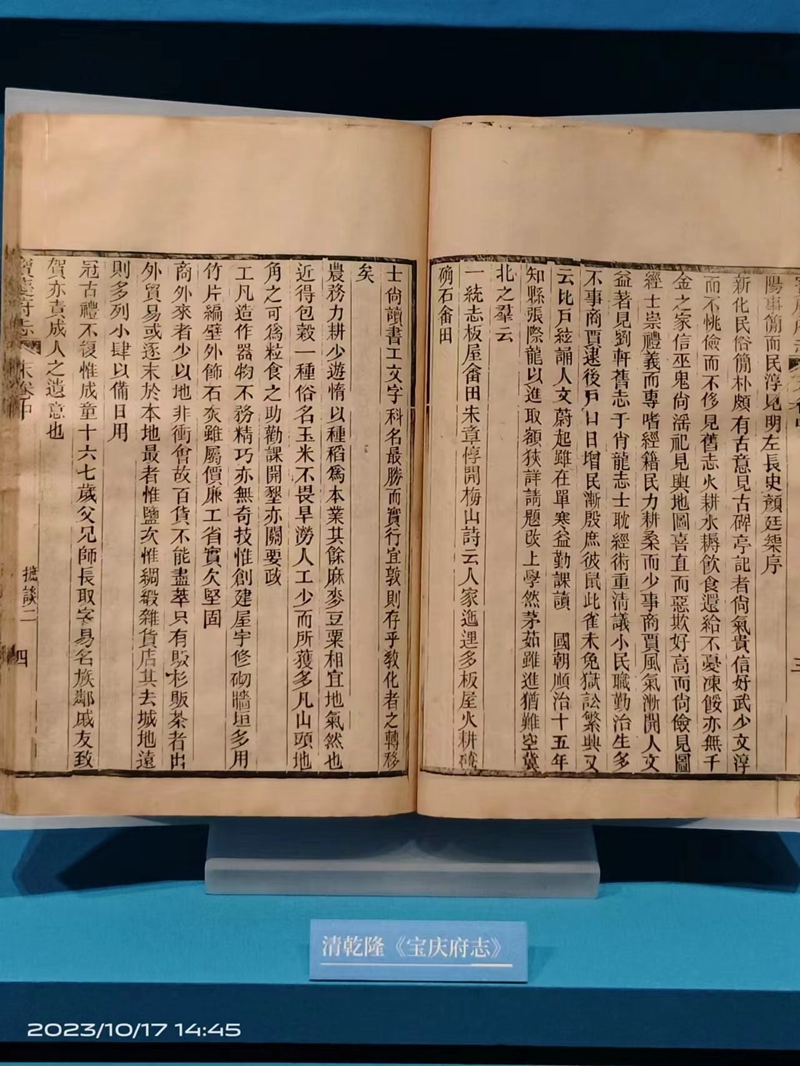 陽事簡而民淳見明左長史顏廷榘序
新化民俗簡朴頗有古意見古碑亭記者尙氣貴信好武少文淳
而不恌儉而不侈見舊志火耕水耨飮食還給不憂凍餒亦無千
金之家信巫鬼尙滛祀見輿地圖喜直而惡欺好高而尙儉見圖
經士崇禮義而專嗜經籍民力耕桑而少事商賈風氣漸開人文
益著見劉軒舊志于肖龍志士耽經術重淸議小民職勤治生多
不事商賈逮後戸口日增民漸殷庶彼鼠此雀未免獄訟繁興又
云比戸絃誦人文蔚起雖在單寒益勤課讀 國朝順治十五年
知縣張際龍以進取額狹詳請題改上學然茅茹雖進猶難空冀
北之羣云
一統志板屋畬田朱章惇開梅山詩云人家迤逦多板屋火耕磽
确石畬田
士尙讀書工文字科名最勝而實行宜敦則存乎敎化者之轉移
矣
農務力耕少遊惰以種稻爲本業其餘麻麥豆粟相宜地氣然也
近得包穀一種俗名玉米不畏旱澇人工少而所獲多凡山頭地
角之可爲粒食之助勸課開墾亦關要政
工凡造作器物不務精巧亦無奇技惟創建屋宇修砌牆垣多用
竹片編壁外飾石灰雖屬價廉工省實欠堅固
商外來者少以地非衝會故百貨不能盡萃只有販杉販茶者出
外貿易或逐末於本地最者惟鹽次惟綢緞雜貨店其去城地遠
則多列小肆以備日用
冠古禮不復惟成童十六七歲父兄師長取字易名族鄰戚友致
賀亦責成人之遺意也
寶慶府志 末卷中 摭談二 四
清乾隆《宝庆府志》
2023/10/17 14:45